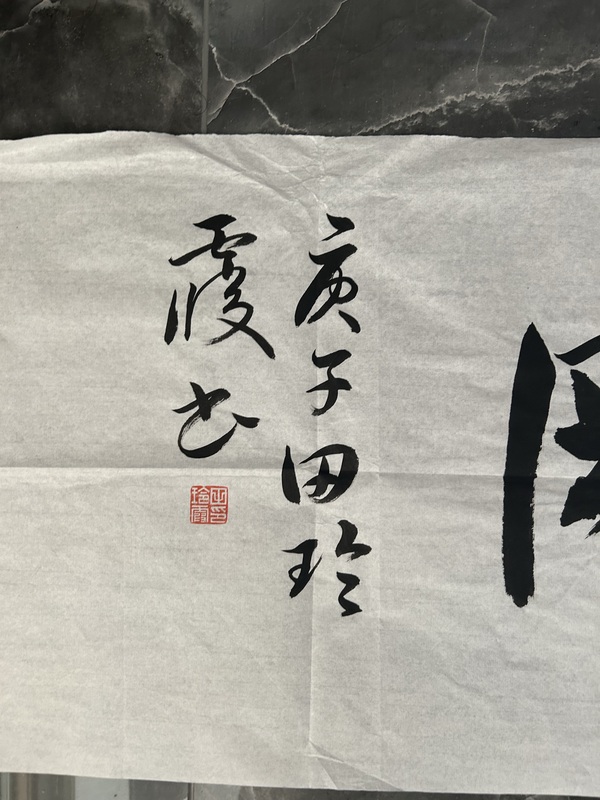 庚子田玲
霞书
田印玲霞